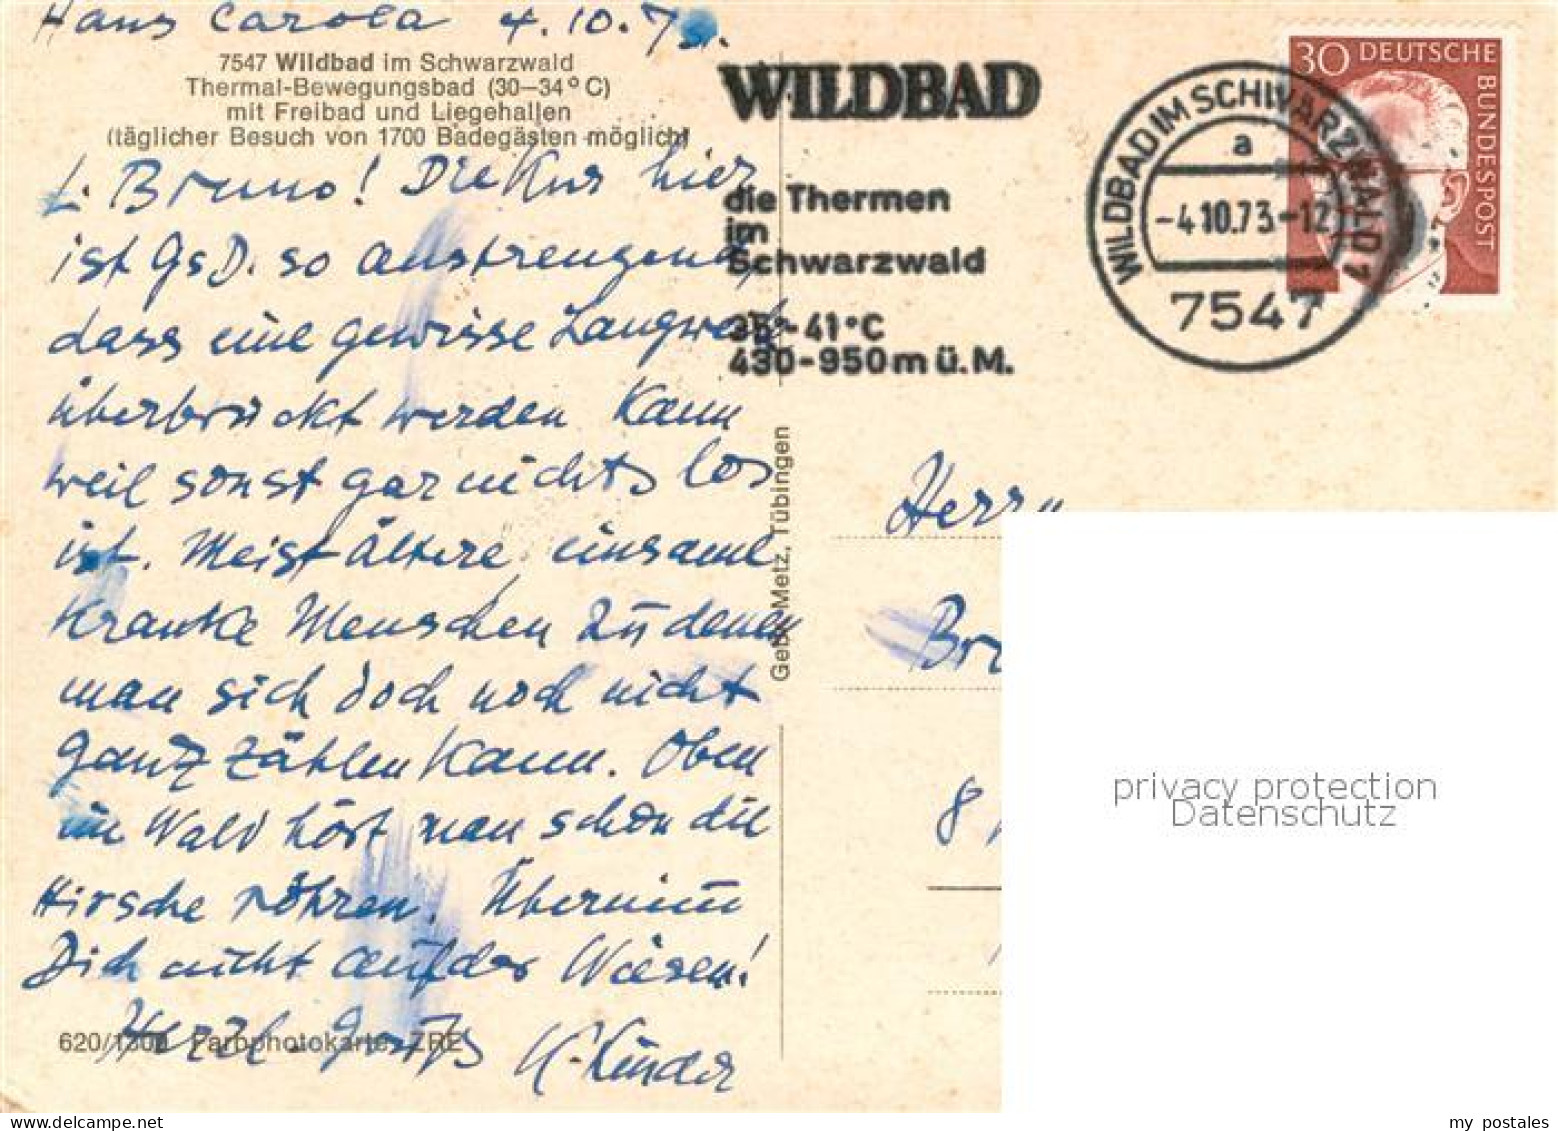 Haus Carola 4.10.73.
7547 Wildbad im Schwarzwald
Thermal-Bewegungsbad (30–34° C)
mit Freibad und Liegehallen
(täglicher Besuch von 1700 Badegästen möglich)
L. Bruno! Die Kur hier
ist GsD. so anstrengend,
dass eine gewisse Langweile
überbrückt werden kann
weil sonst gar nichts los
ist. Meist ältere einsame
kranke Menschen zu denen
man sich doch noch nicht
ganz zählen kann. Oben
im Wald hört man schon die
Hirsche röhren. Übernimm
Dich nicht auf der Wiesen!
Herzl. Gruß
620/1300 Farbphotokarte ZRE
Gebr. Metz, Tübingen
WILDBAD
die Thermen
im
Schwarzwald
35°-41°C
430-950m ü.M.
WILDBAD IM SCHWARZWALD 1
a
-4.10.73.-12
7547
30 DEUTSCHE
BUNDESPOST
Herrn
8
privacy protection
Datenschutz
my postales